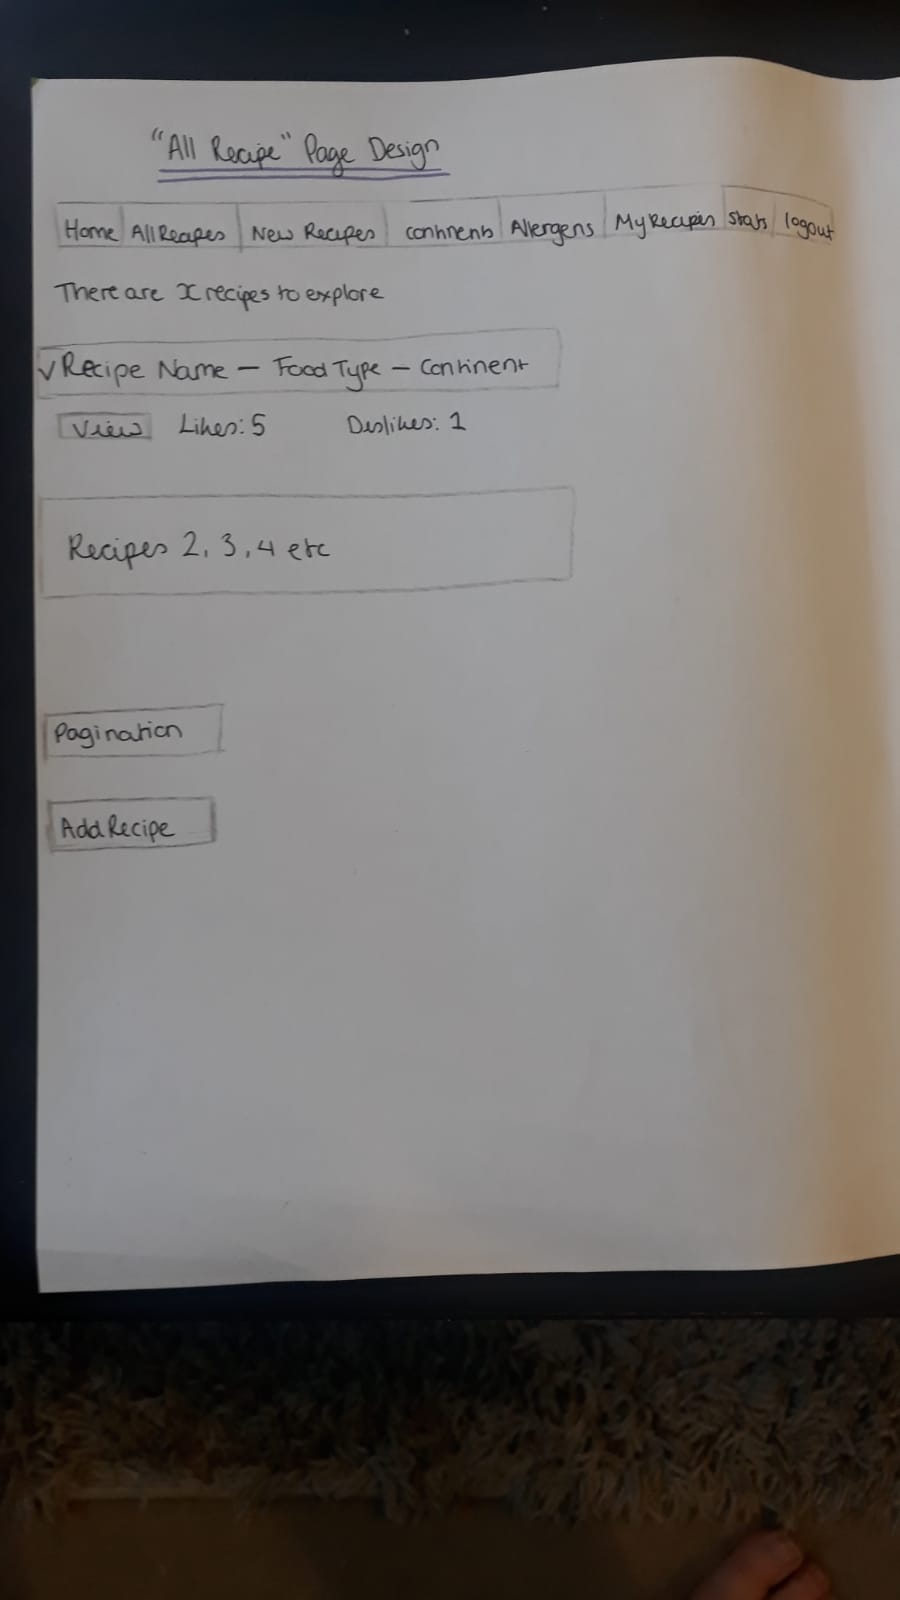 "All Recipe" Page Design
Home All Recipes New Recipes continents Allergens My Recipes Stats logout
There are x recipes to explore
v Recipe Name - Food Type - Continent
View Likes: 5 Dislikes: 1
Recipes 2, 3, 4 etc
Pagination
Add Recipe